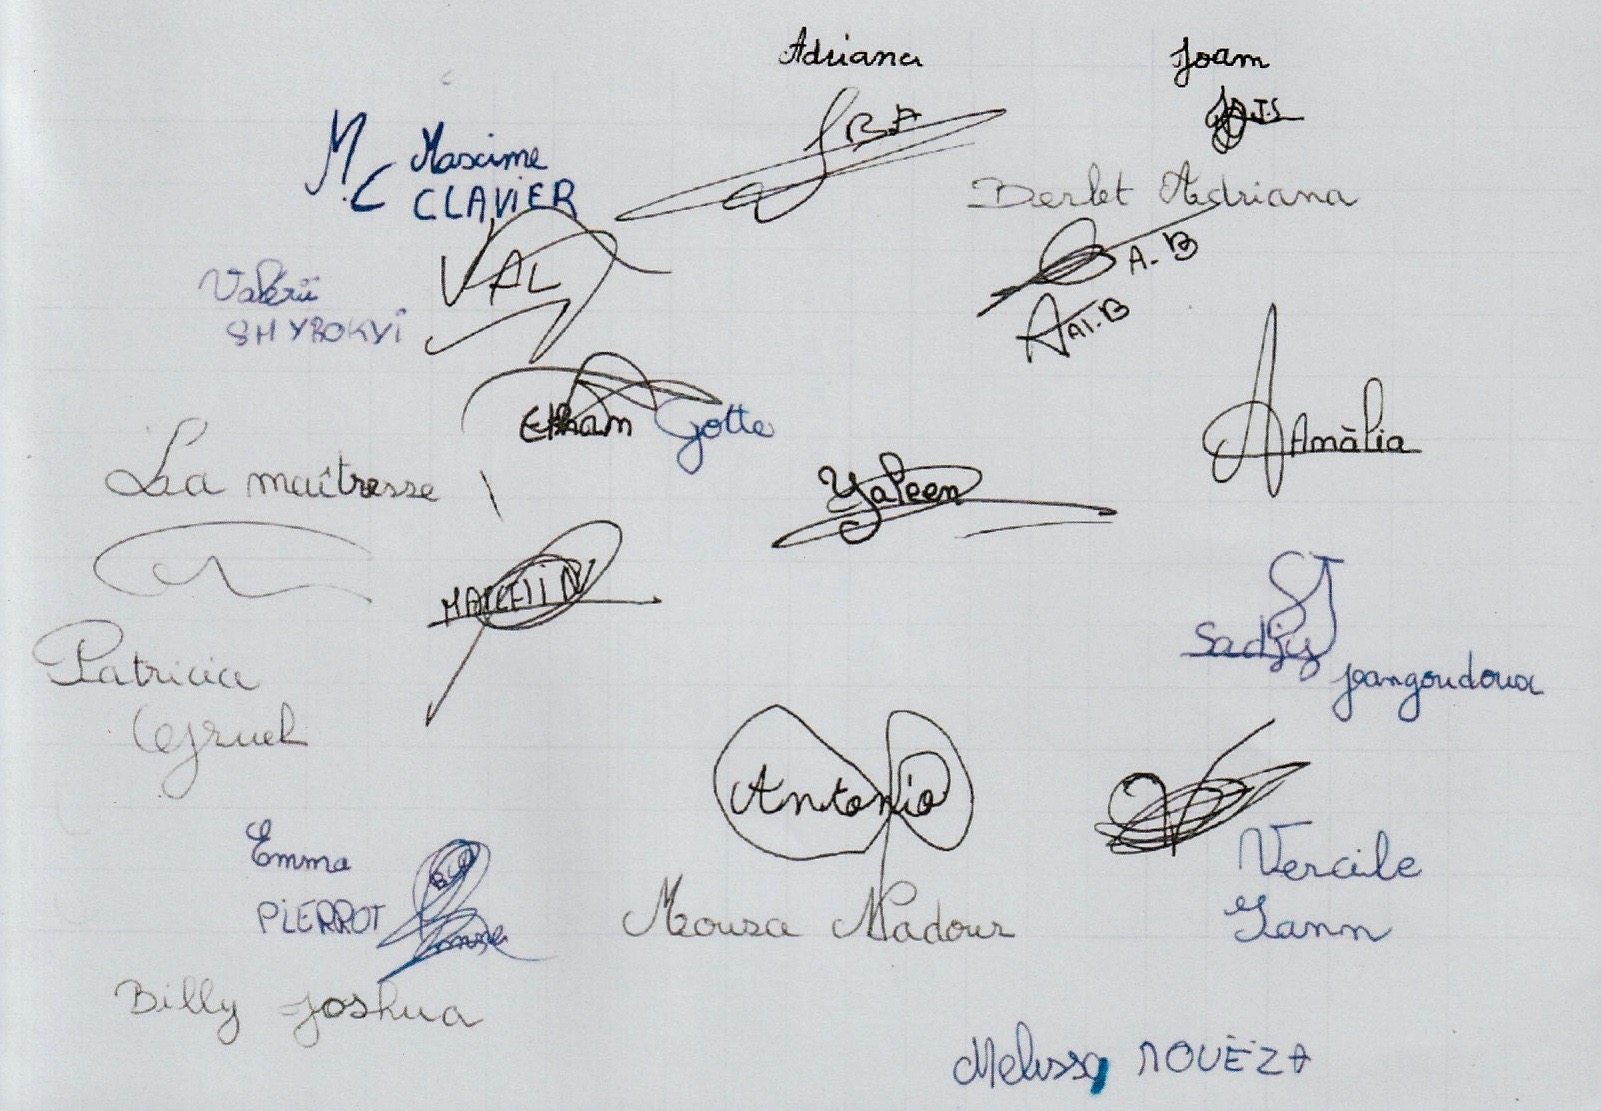 Adriana
Joam
J.S
BA
M.C
Maxime
CLAVIER
Berlet Adriana
A.B
A1.B
VAL
Valérii
SHYROKYI
Ethan Gotte
Amàlia
La maîtresse
Yaleen
Sadjy
Jeangoudoux
Patricia
Antonio
Emma
PIERROT
Vercile
Yann
Mousa Madour
Billy Joshua
Melissa ROUËZA